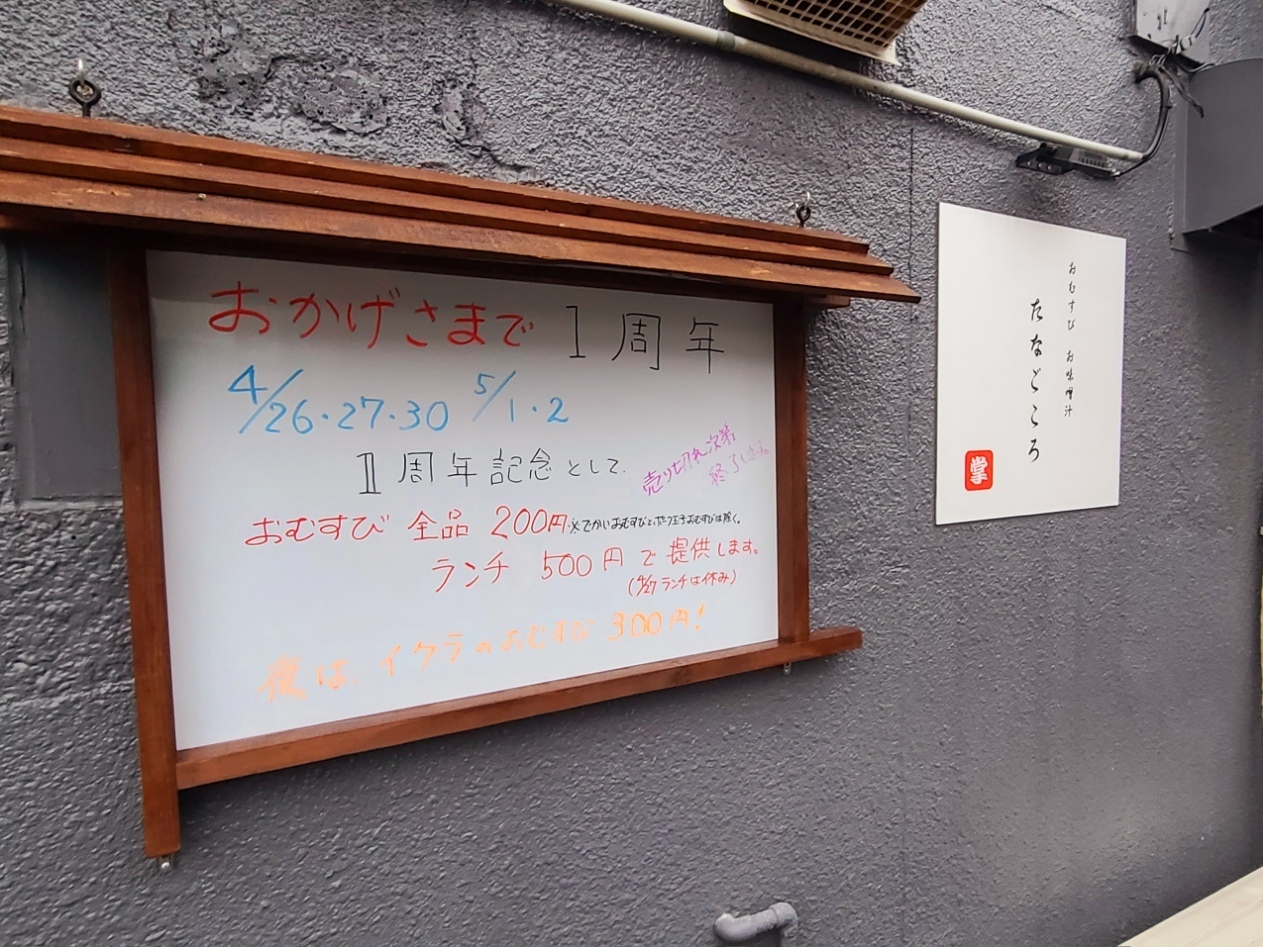 おかげさまで 1周年
4/26・27・30 5/1・2
1周年記念として、
売り切れ次第
終了します。
おむすび 全品 200円 ※でかいおむすびとポーク玉子おむすびは除く。
ランチ 500円で提供します。
(4/27 ランチは休み)
夜は、イクラのおむすび 300円!
おむすび お味噌汁
たなごころ
掌